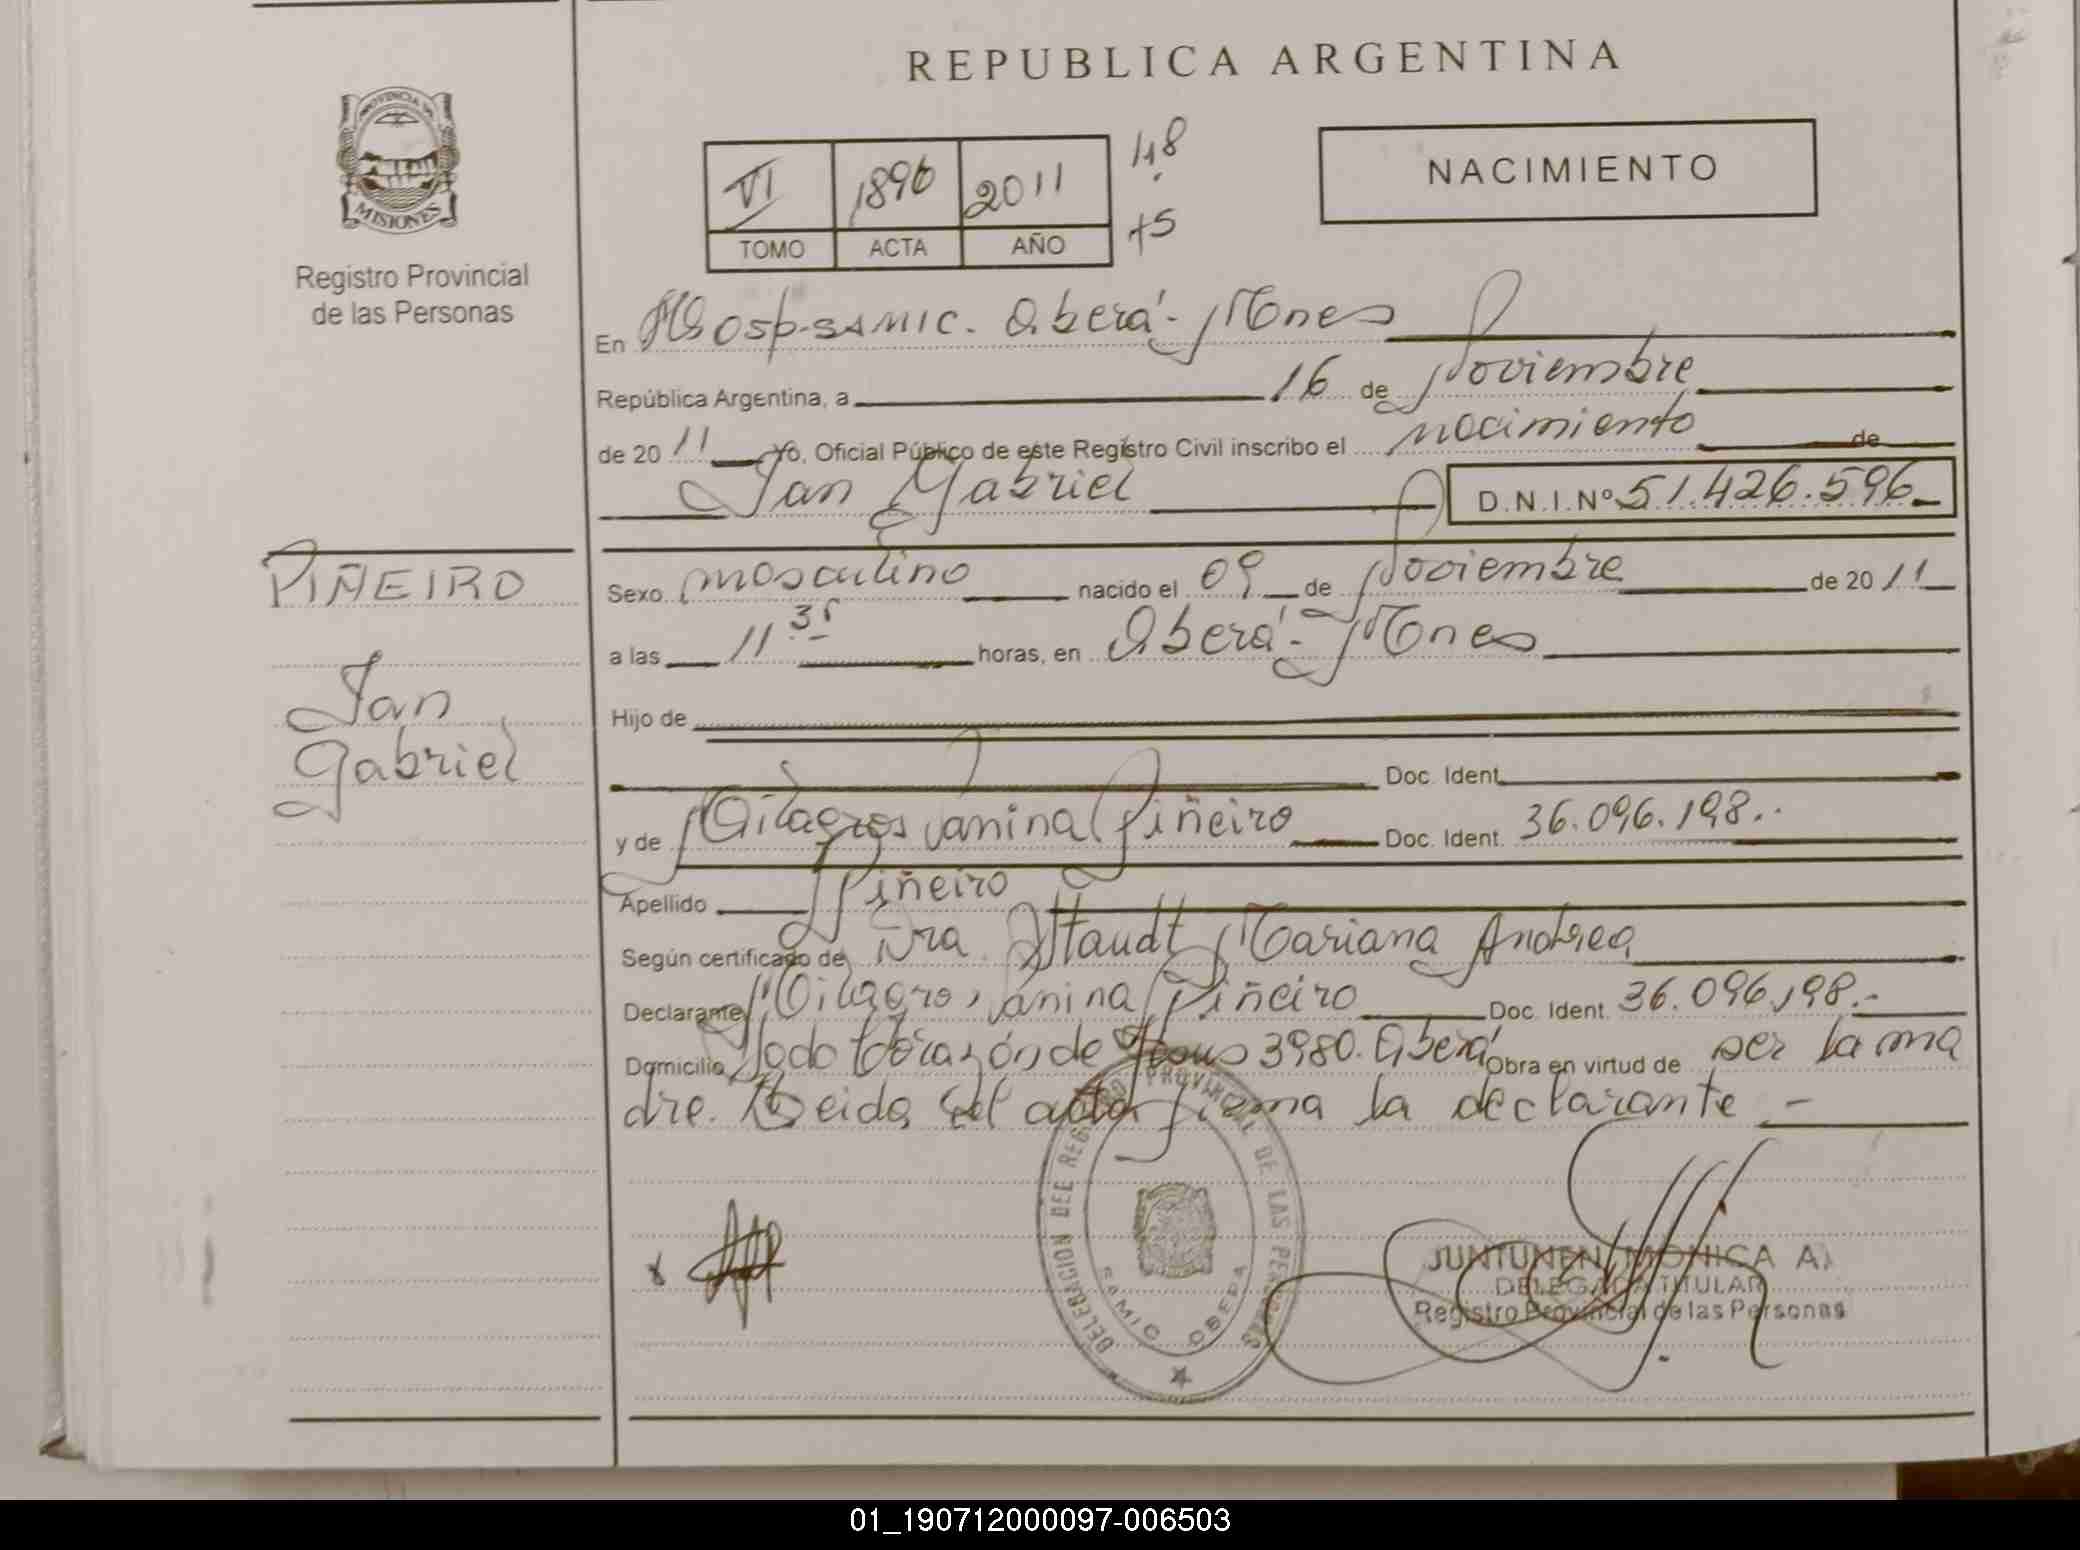 REPUBLICA ARGENTINA
PROVINCIA DE
MISIONES
Registro Provincial
de las Personas
VI 1896 2011
TOMO ACTA AÑO
148
+5
NACIMIENTO
En Hosp. SAMIC. Oberá - Mnes
República Argentina, a 16 de Noviembre
de 20 11 Yo, Oficial Público de este Registro Civil inscribo el nacimiento de
Ian Gabriel D.N.I.Nº 51.426.596
PIÑEIRO
Ian
Gabriel
Sexo masculino nacido el 09 de Noviembre de 20 11
a las 11 horas, en Oberá - Mnes
Hijo de
Doc. Ident.
y de Milagros Janina Piñeiro Doc. Ident. 36.096.198.-
Apellido Piñeiro
Según certificado de Dra. Staudt Mariana Andrea
Declarante Milagros Janina Piñeiro Doc. Ident. 36.096.198.-
Domicilio Corazón de Jesus 3980. Oberá Obra en virtud de ser la ma
dre. Leida el acta firma la declarante -
DELEGACION DEL REGISTRO PROVINCIAL DE LAS PERSONAS
SAMIC OBERA
JUNTUNEN, MONICA A.
DELEGADA TITULAR
Registro Provincial de las Personas
01_190712000097-006503